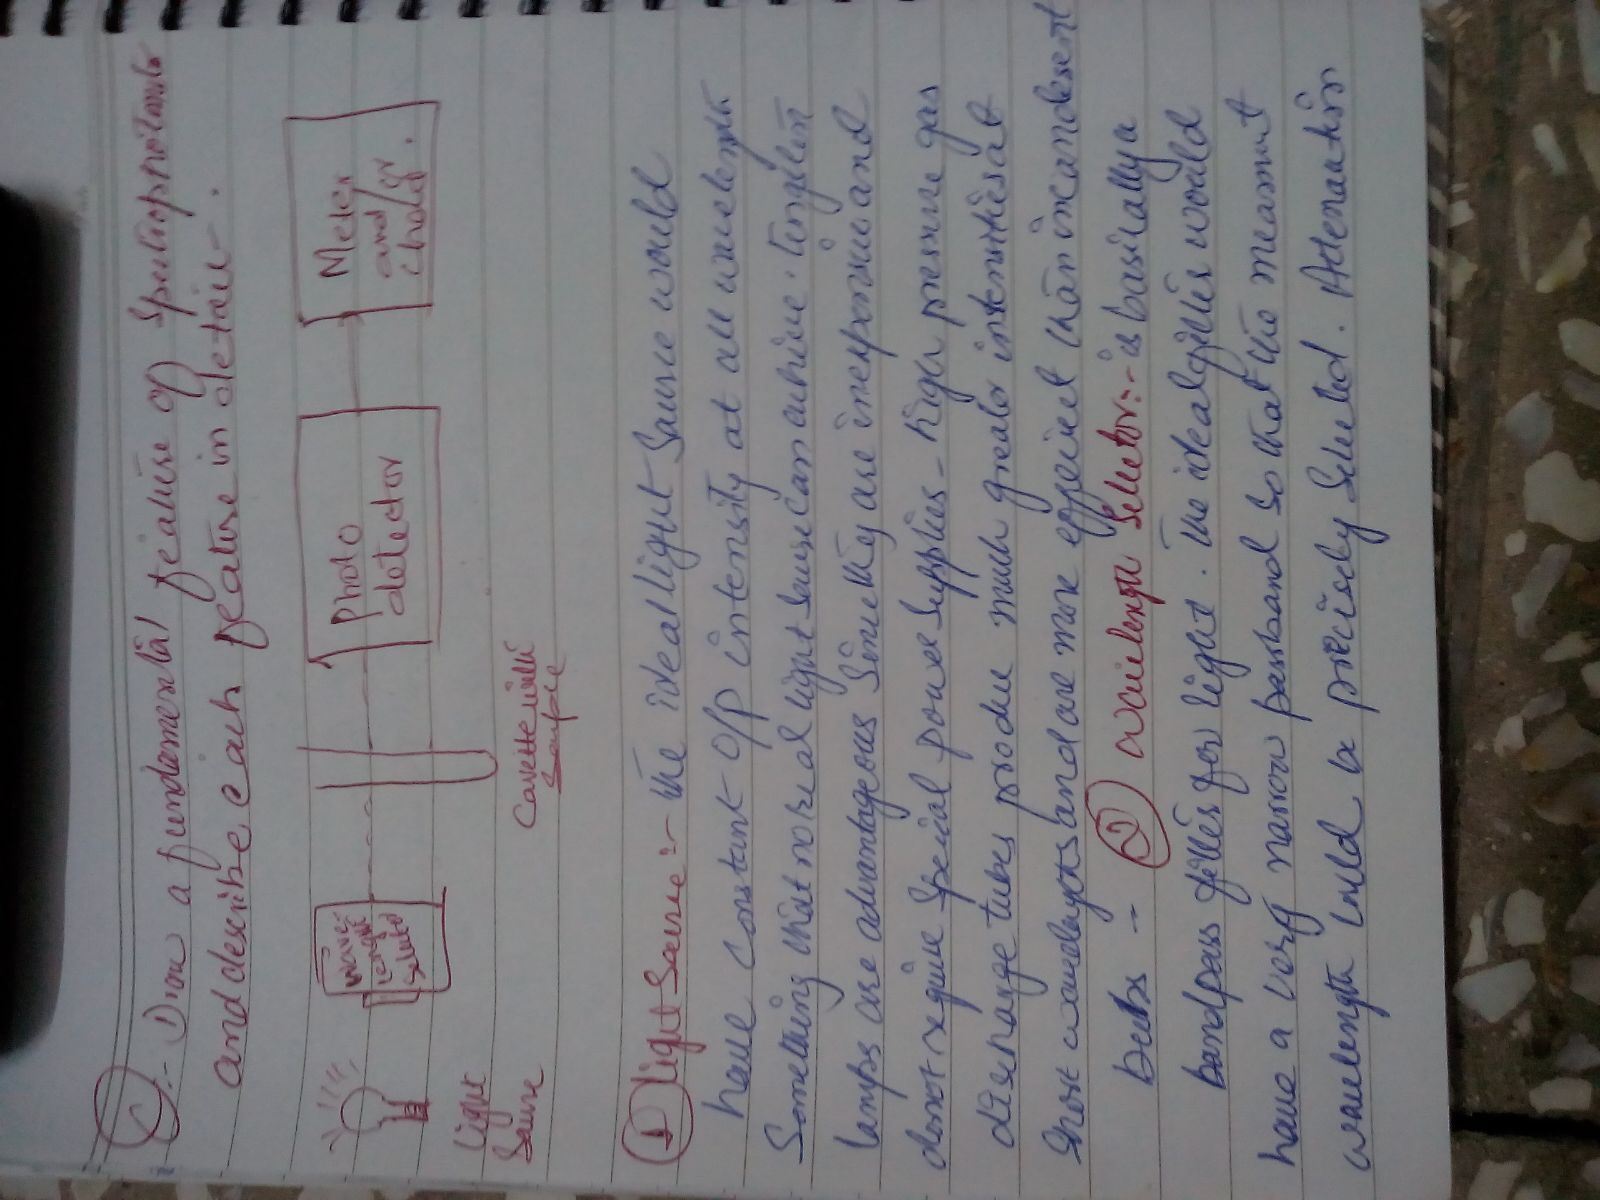 C:- Draw a fundamental feature of Spectrophotometer
and describe each feature in detail - .
Wave-
lenght
Selector
Photo
detector
Meter
and/or
Light
Source
Cavette with
Sample
① light Source :- the ideal light Source would
have constant O/P intensity at all wavelength
Something that no real light Source can achive. Tungsten
lamps are advantageous Since they are inexpensive and
donot require Special power Supplies - high pressure gas
discharge tubes produce much greater intensities at
Short wavelengths and are more efficient than incandesent
bulbs - ② wavelength Selector:- is basically a
bandpass filter for light. The ideal filter would
have a very narrow passband so that the
wavelength could be precisely Selected. Attenuation